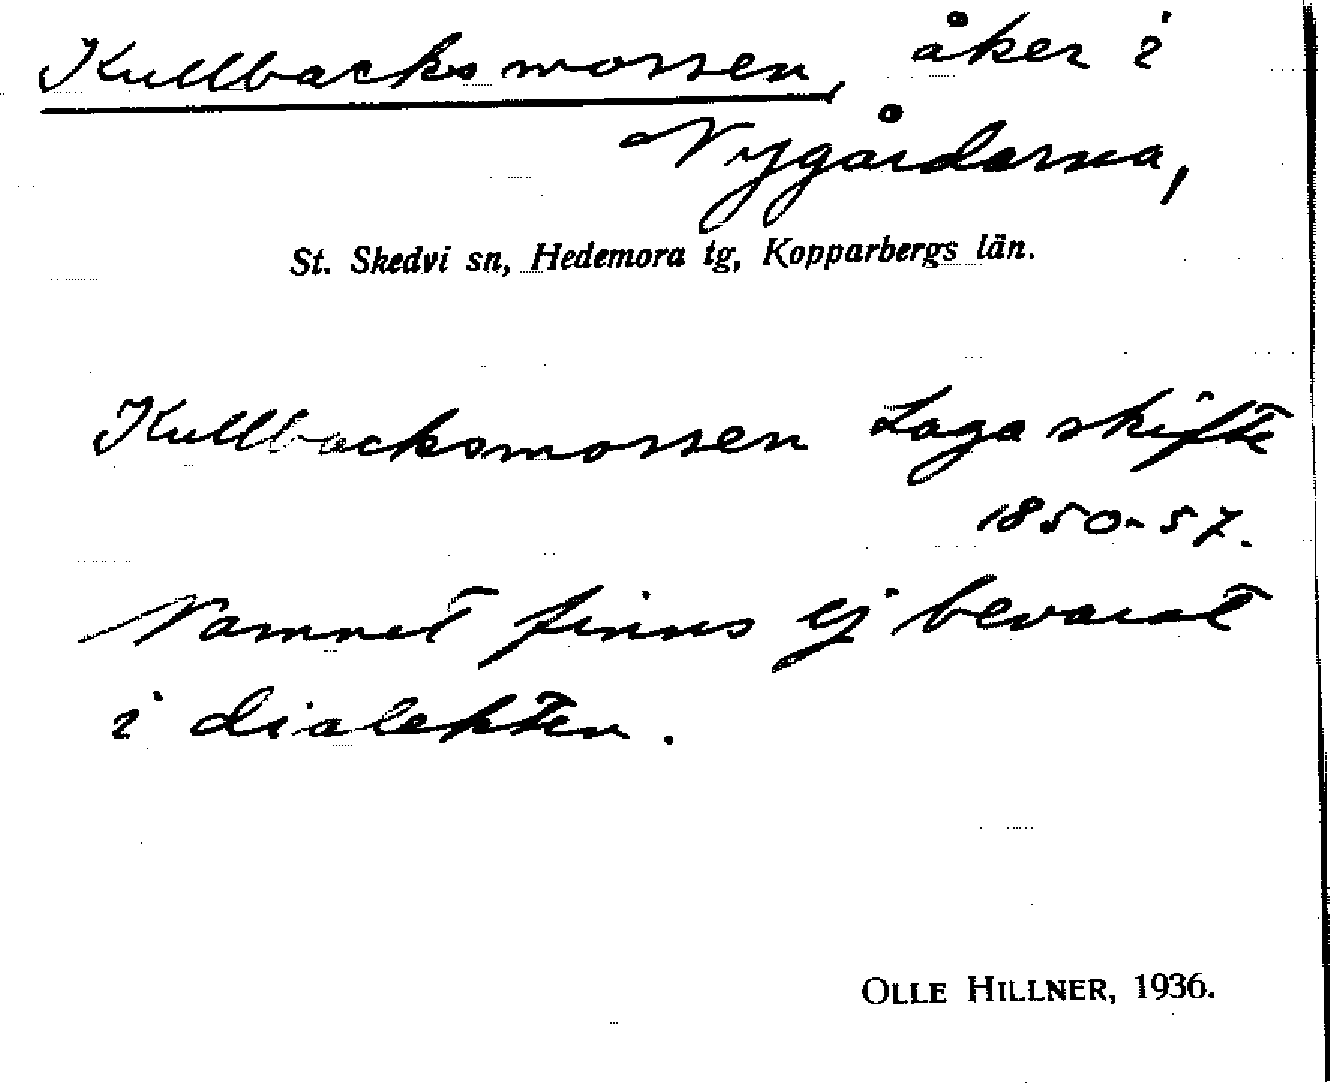 Kullbacksmossen, åker i
Nygårdarna,
St. Skedvi sn, Hedemora tg, Kopparbergs län.
Kullbacksmossen Laga skifte
1850-57.
Namnet finns ej bevarat
i dialekten.
OLLE HILLNER, 1936.